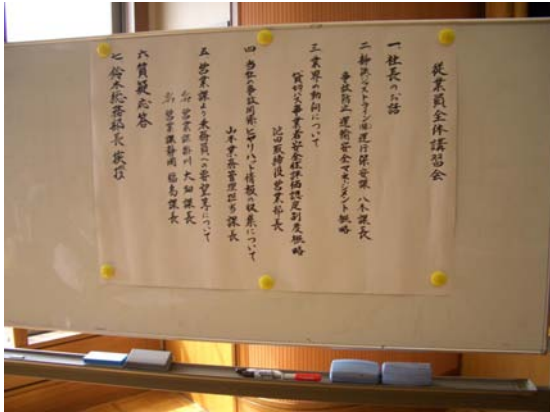 従業員全体講習会
一 社長のお話
二 静鉄ジャストライン㈱運行保安課 八木課長
事故防止 運輸安全マネジメント概略
三 業界の動向について
貸切バス事業者安全性評価認定制度概略
池田取締役営業部長
四 当社の事故関係ヒヤリハット情報の収集について
山本業務管理担当課長
五 営業課より乗務員への要望等について
営業課掛川 大畑課長
営業課静岡 課長
六 質疑応答
七 鈴木総務部長 挨拶